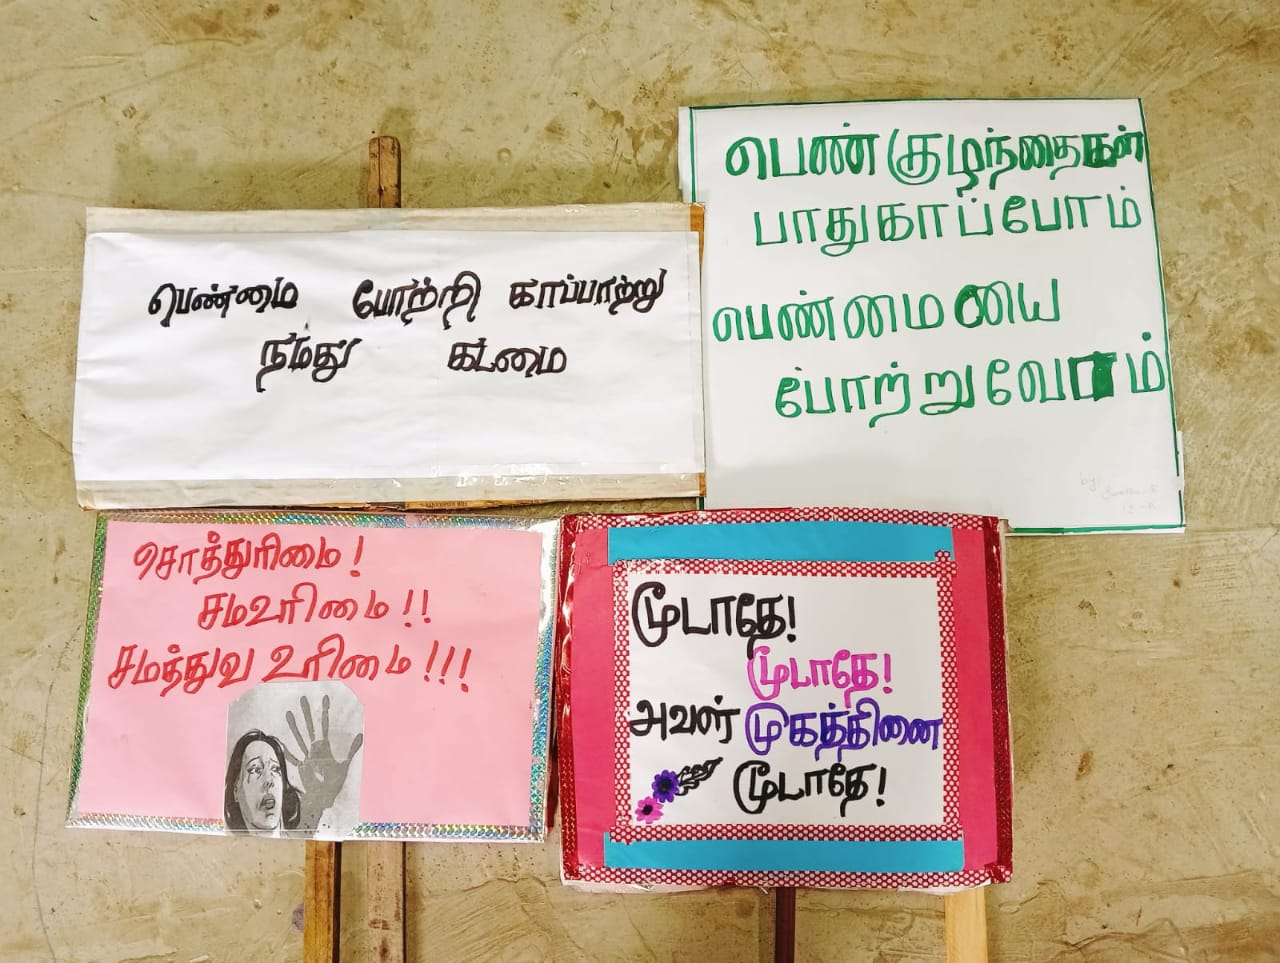 பெண்மை போற்றி காப்பாற்று
நமது கடமை
பெண் குழந்தைகள்
பாதுகாப்போம்
பெண்மையை
போற்றுவோம்
by
சொத்துரிமை!
சமஉரிமை!!
சமத்துவ உரிமை!!!
மூடாதே!
மூடாதே!
அவள் முகத்தினை
மூடாதே!